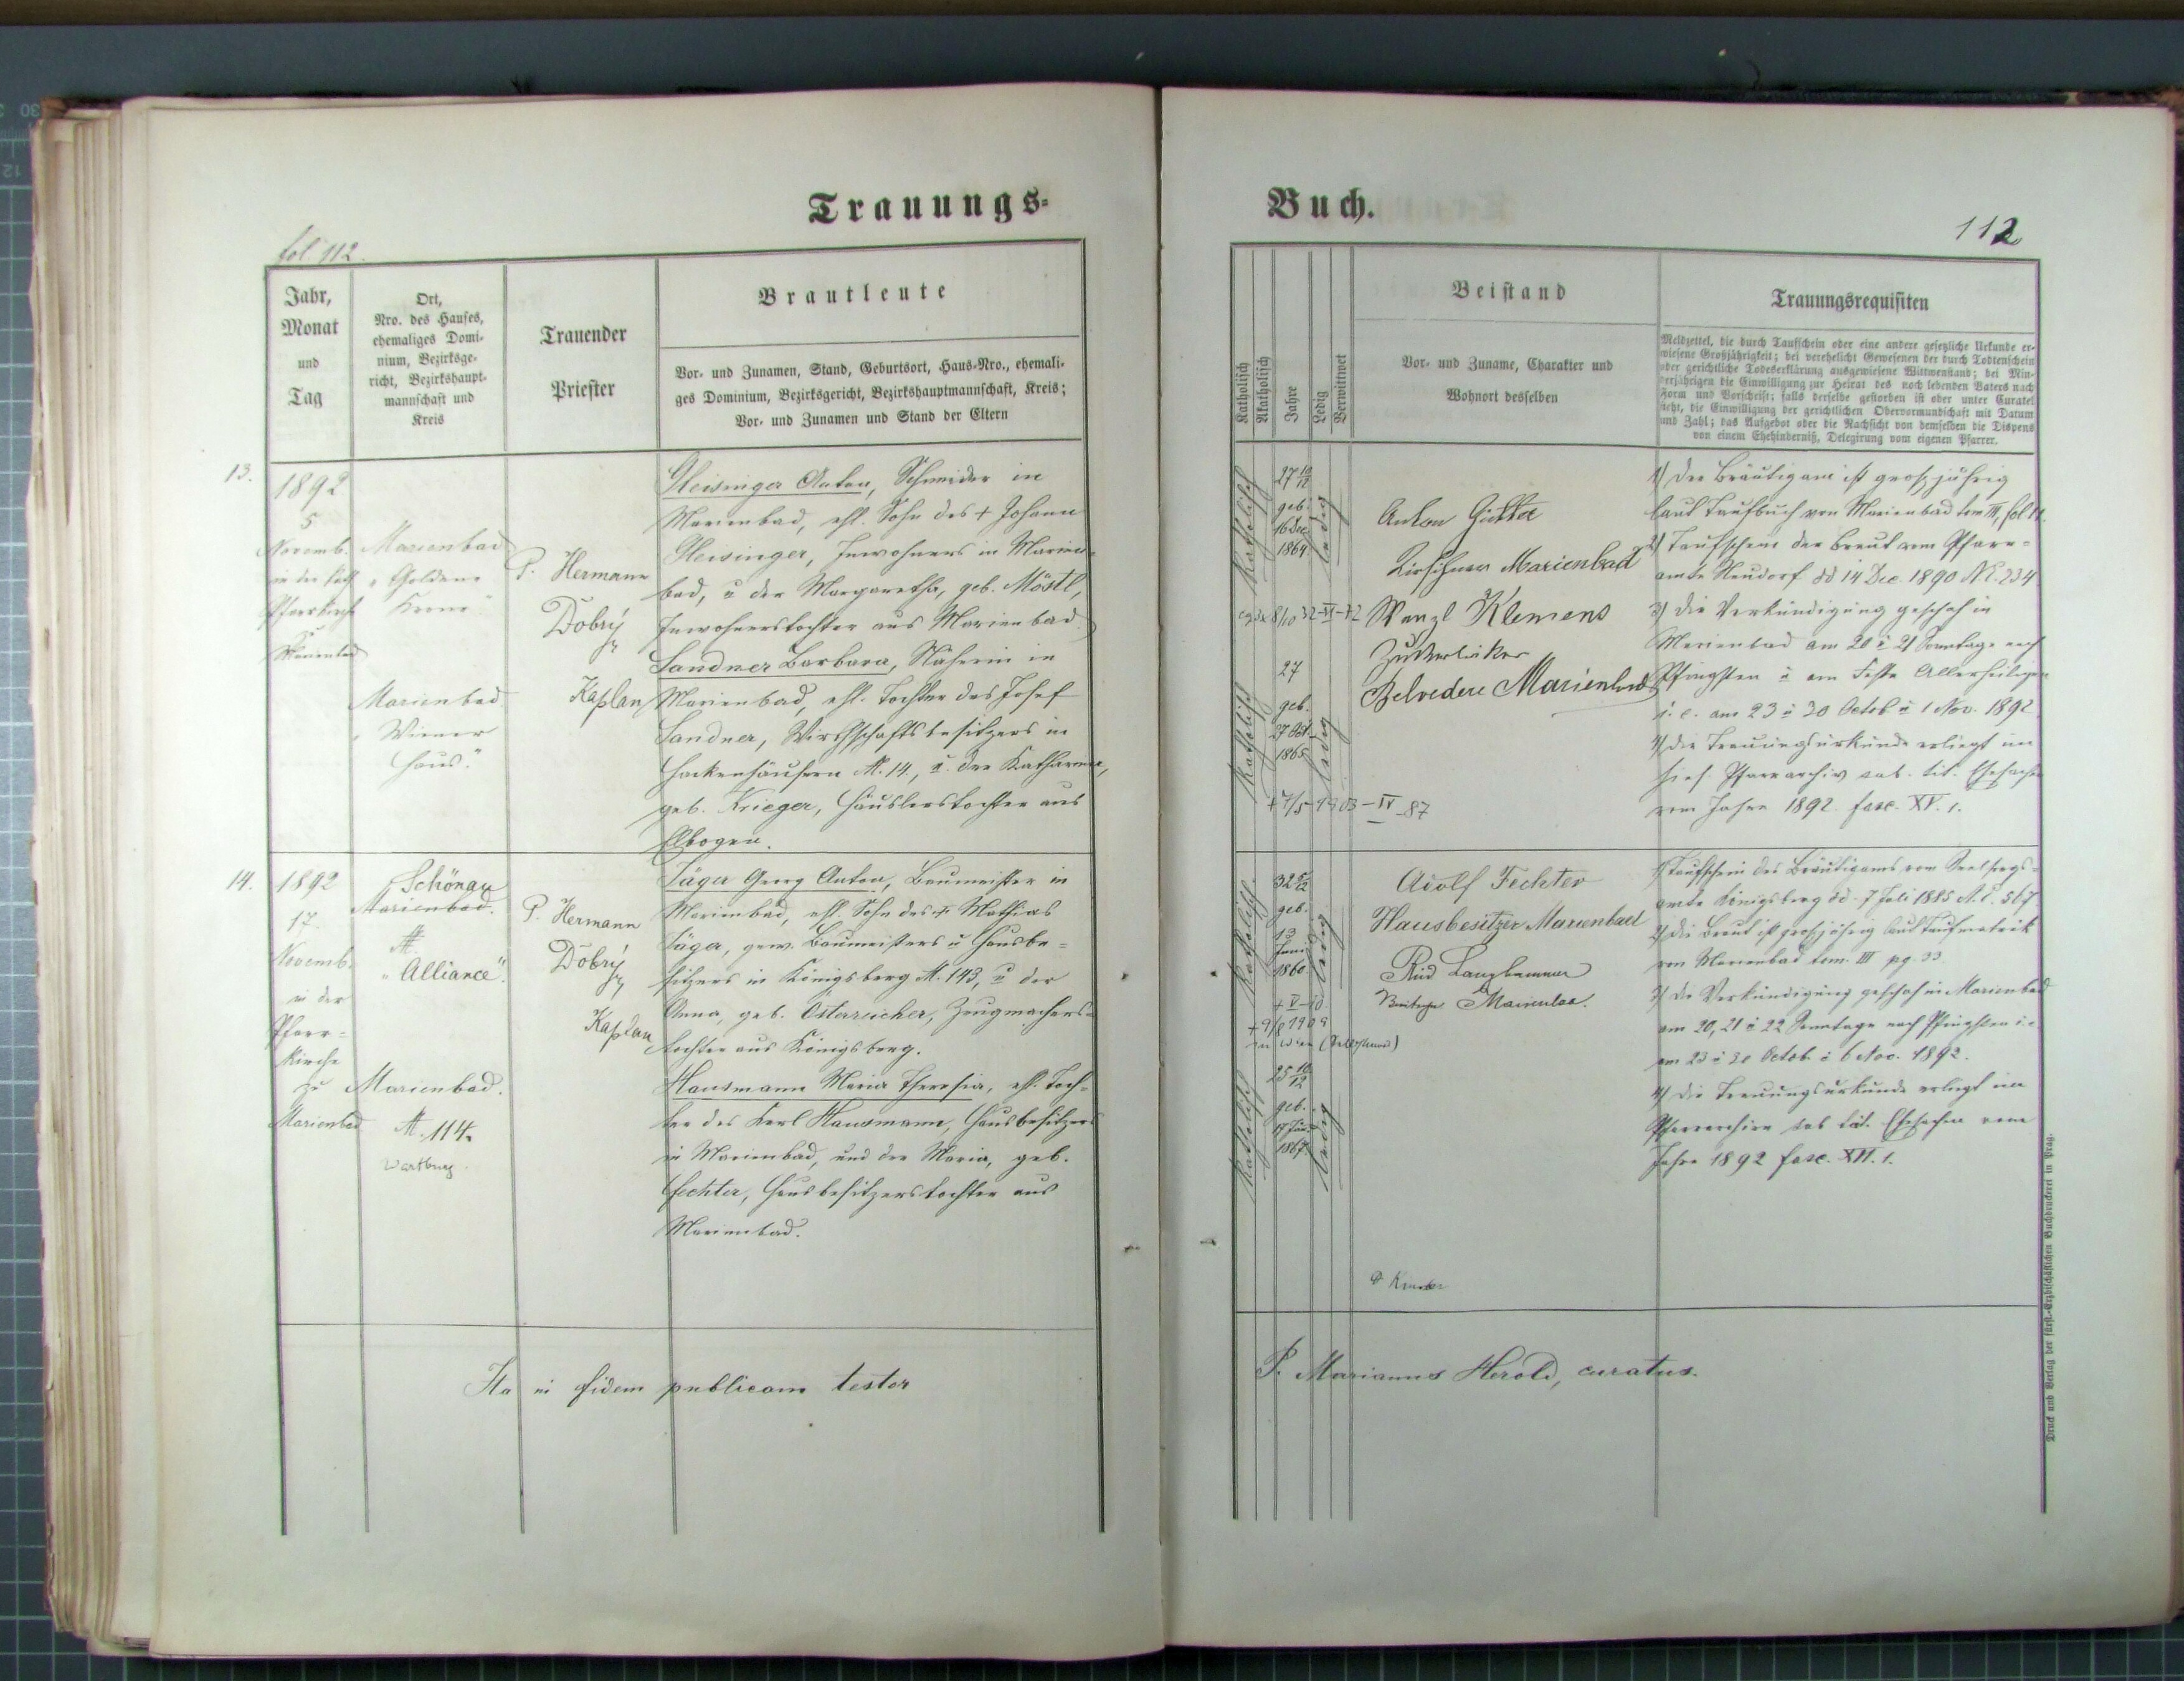 Trauungs-
fol. 112.
Jahr,
Monat
und
Tag
Ort,
Nro. des Hauses,
ehemaliges Domi-
nium, Bezirksge-
richt, Bezirkshaupt-
mannschaft und
Kreis
Trauender
Priester
Brautleute
Vor- und Zunamen, Stand, Geburtsort, Haus-Nro., ehemali-
ges Dominium, Bezirksgericht, Bezirkshauptmannschaft, Kreis;
Vor- und Zunamen und Stand der Eltern
13.
1892
5
Novemb.
in der kath
Pfarrkirche
zu
Marienbad
Marienbad
"Goldene
Krone"
Marienbad
"Wiener
Haus."
P. Hermann
Dobrý
Kaplan
Gleisinger Anton, Schneider in
Marienbad, ehl. Sohn des † Johann
Gleisinger, Inwohners in Marien-
bad, u der Margaretha, geb. Möstl,
Inwohnerstochter aus Marienbad.
Sandner Barbara, Näherin in
Marienbad, ehl. Tochter des Josef
Sandner, Wirthschaftsbesitzers in
Hackenhäusern N. 14., u. der Katharina,
geb. Krieger, Häuslerstochter aus
Elbogen.
14.
1892
17.
Novemb.
in der
Pfarr-
kirche
zu
Marienbad
Schönau
Marienbad.
N.
"Alliance".
Marienbad.
N. 114.
Wartburg.
P. Hermann
Dobrý
Kaplan
Jäger Georg Anton, Baumeister in
Marienbad, ehl. Sohn des † Mathias
Jäger, gew. Baumeisters u Hausbe-
sitzers in Königsberg N. 143, u der
Anna, geb. Österreicher, Zeugmachers-
tochter aus Königsberg.
Hausmann Maria Theresia, ehl. Toch-
ter des Karl Hausmann, Hausbesitzers
in Marienbad, und der Maria, geb.
Fechter, Hausbesitzerstochter aus
Marienbad.
Ita in fidem publicam testor
Buch.
112
Katholisch
Akatholisch
Jahre
Ledig
Verwittwet
Beistand
Vor- und Zuname, Charakter und
Wohnort desselben
Trauungsrequisiten
Meldzettel, die durch Taufschein oder eine andere gesetzliche Urkunde er-
wiesene Großjährigkeit; bei verehelicht Gewesenen der durch Todtenschein
oder gerichtliche Todeserklärung ausgewiesene Wittwenstand; bei Min-
derjährigen die Einwilligung zur Heirat des noch lebenden Vaters nach
Form und Vorschrift; falls derselbe gestorben ist oder unter Curatel
steht, die Einwilligung der gerichtlichen Obervormundschaft mit Datum
und Zahl; das Aufgebot oder die Nachsicht von demselben die Dispens
von einem Ehehinderniß, Delegirung vom eigenen Pfarrer.
katholisch
27 10/12
geb.
16 Dec
1864
ledig
Anton
Kirschner Marienbad
Wenzl Klemens
Zuckerbäcker
Belvedere Marienbad
katholisch
27
geb.
27 Okt.
1865
ledig
† 7/5 1903 - IV - 87
1) Der Bräutigam ist großjährig
laut Taufbuch von Marienbad tom III, fol.
2) Taufschein der Braut vom Pfarr-
amte Neudorf dd 14 Dec. 1890 N. 234
3) Die Verkündigung geschah in
Marienbad am 20 u 21 Sonntage nach
Pfingsten u am Feste Allerheiligen
i. e. am 23 u 30 Octob u 1 Nov. 1892
4) Die Trauungsurkunde erliegt im
hies. Pfarrarchiv sub. tit. Ehesachen
vom Jahre 1892 fasc. XV. 1.
katholisch
32 5/12
geb.
13
Juni
1860
ledig
† V-10
† 9/6 1909
in Wien
Adolf Fechter
Hausbesitzer Marienbad
Marienbad.
katholisch
25 10/12
geb.
17 Jän.
1867
ledig
1) Taufschein des Bräutigams vom Seelsorgs-
amte Königsberg dd. 7 Juli 1885 N. E. 567
2) Die Braut ist großjährig laut Taufmatrik
von Marienbad tom. III pg. 33.
3) Die Verkündigung geschah in Marienbad
am 20, 21 u 22 Sonntage nach Pfingsten i. e.
am 23 u 30 Octob. u 6 Nov. 1892.
4) Die Trauungsurkunde erliegt im
Pfarrarchive sub tit. Ehesachen vom
Jahre 1892 fasc. XVI. 1.
P. Marianus Herold, curatus.
Druck und Verlag der fürst.-Erzbischöflichen Buchdruckerei in Prag.